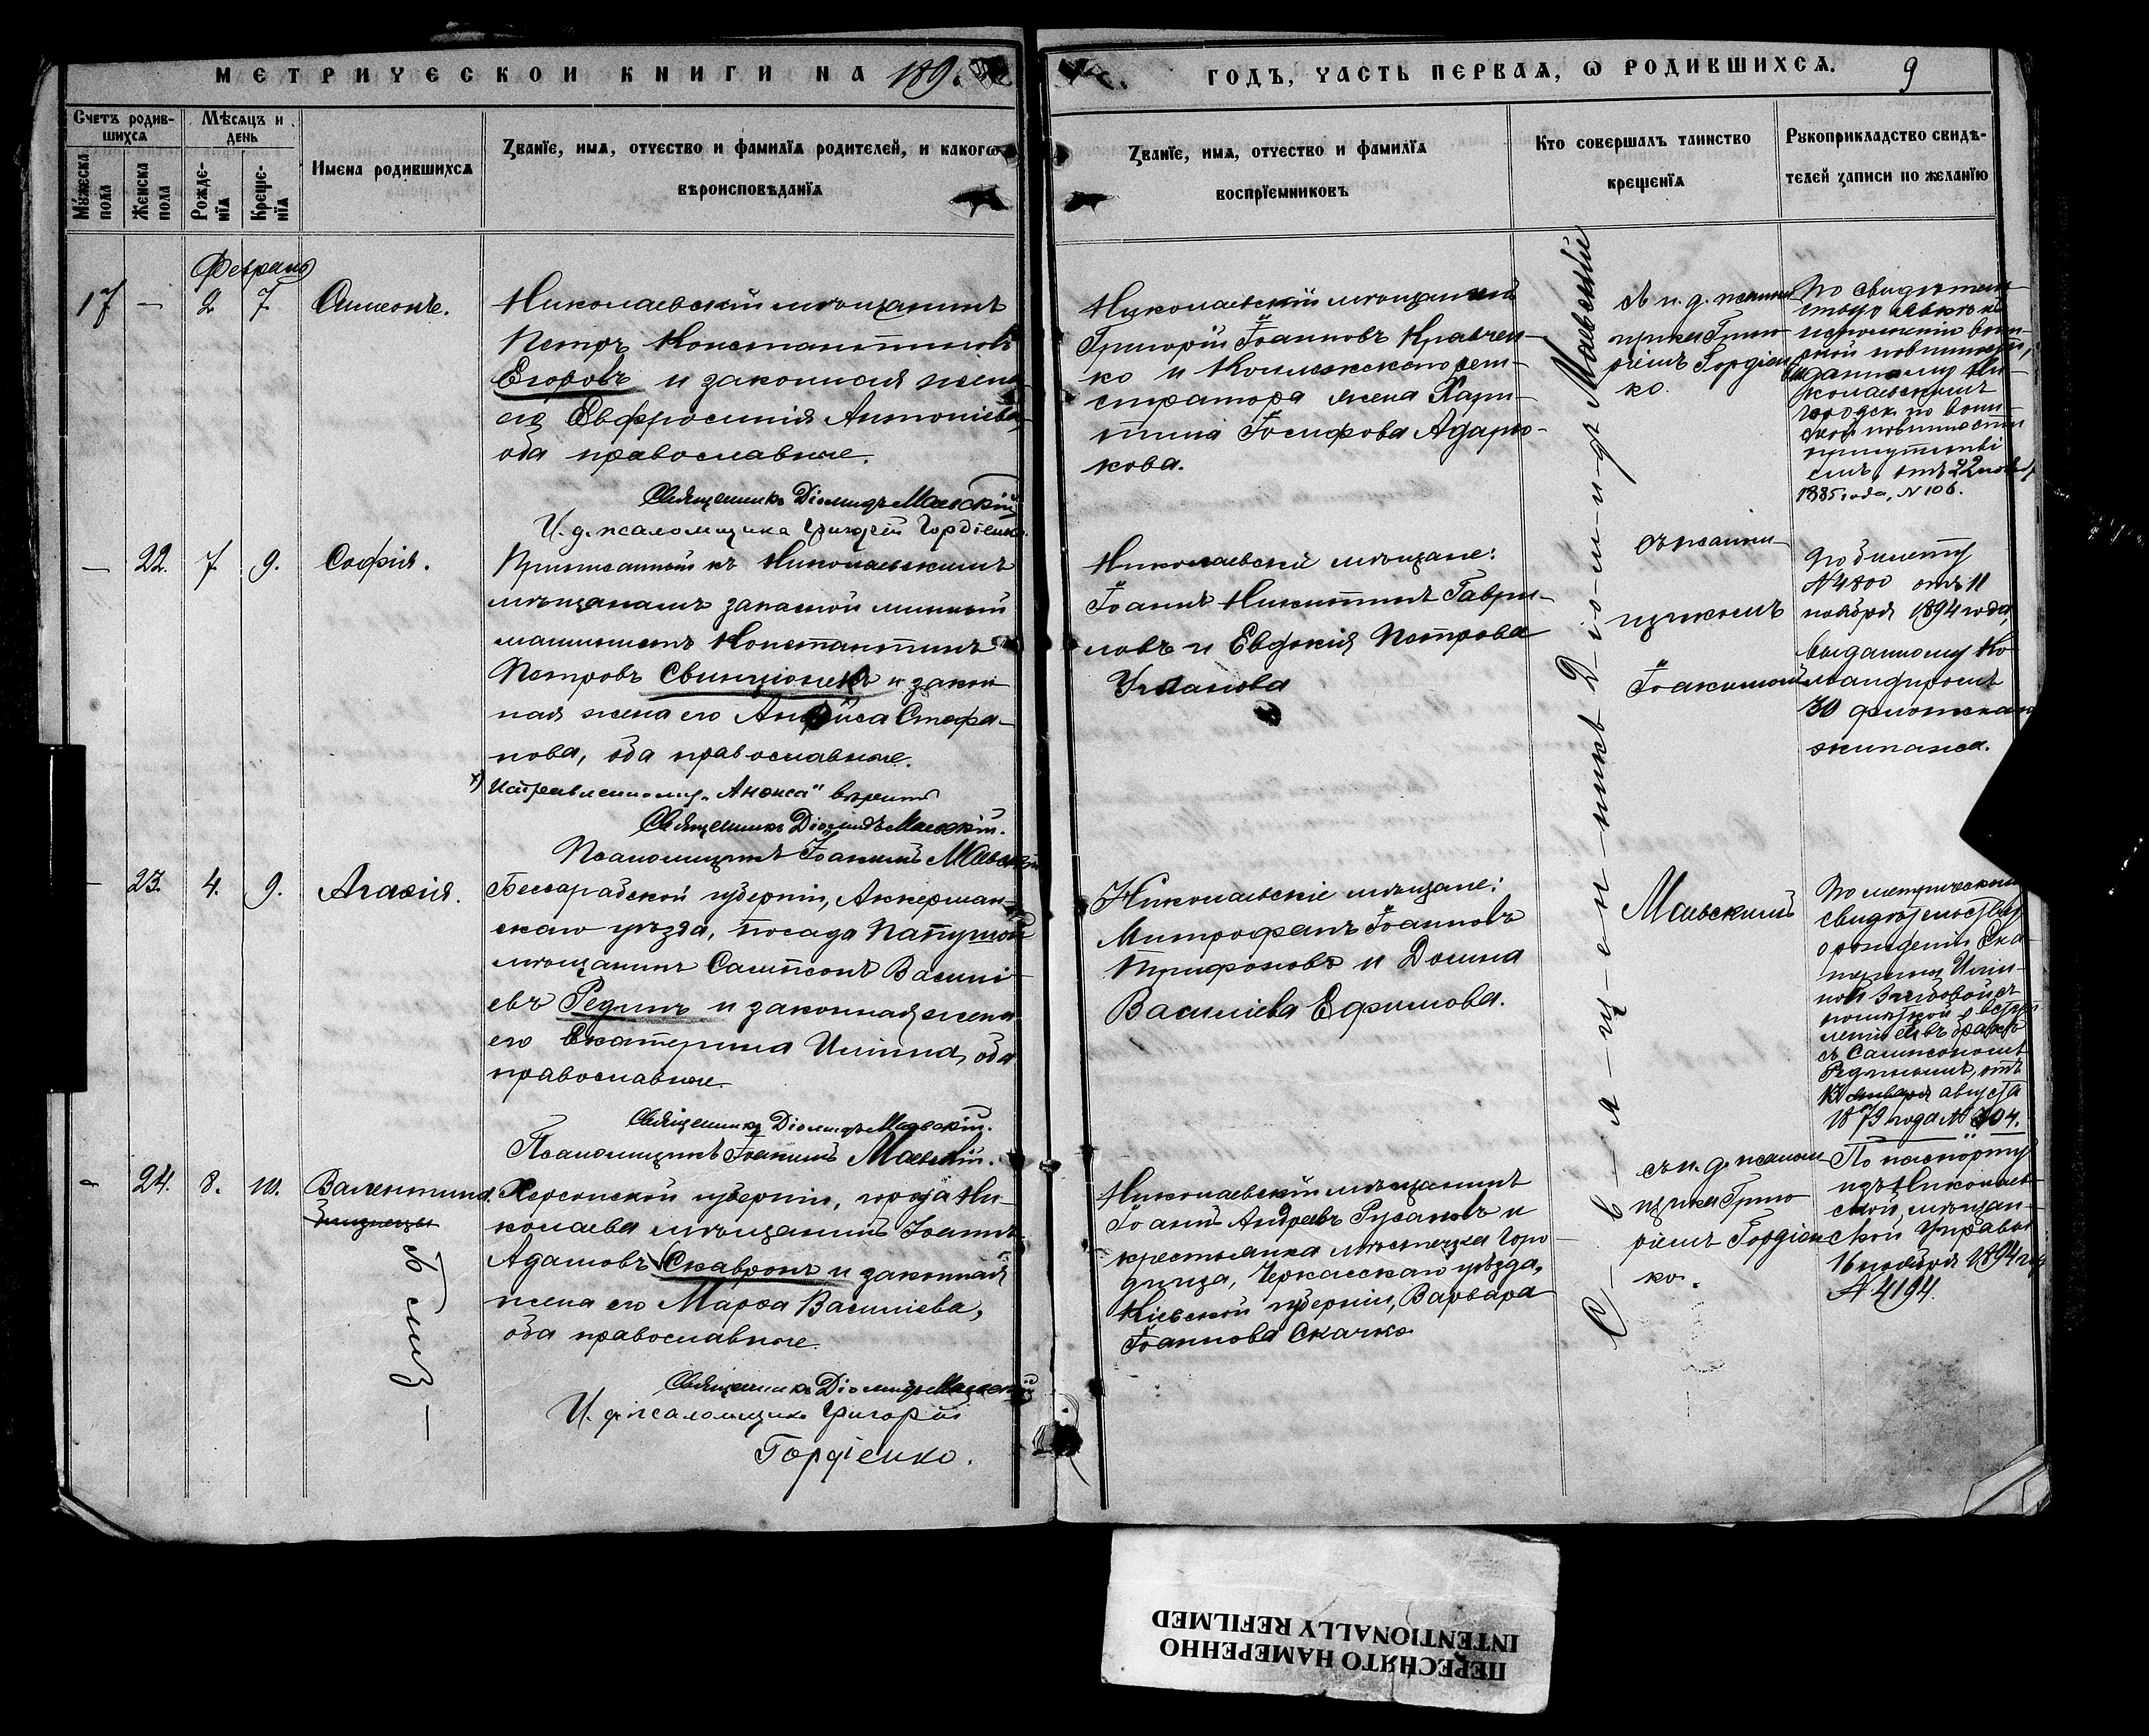 МЕТРИЧЕСКОЙ КНИГИ НА 189
ГОДЪ, ЧАСТЬ ПЕРВАЯ, Ѡ РОДИВШИХСЯ.
9
Счетъ родив-
шихся
Мѣсяцъ и
день
Мꙋжеска
пола
Женска
пола
Рожде-
нїя
Креще-
нїя
Имена родившихся
Званїе, имя, отчество и фамилїя родителей, и какогѡ
вѣроисповѣданїя
Званїе, имя, отчество и фамилїя
воспрїемниковъ
Кто совершалъ таинство
крещенїя
Рꙋкоприкладство свидѣ-
телей записи по желанїю
Февраль
17 — 2 7. Симеонъ.
Николаевскій мѣщанинъ
Петръ Константиновъ
Егоровъ и законная жена
его Евфросинія Антоніева,
оба православные.
Священникъ Діомидъ Маевскій
И. д. псаломщика Григорій Гордіенко.
Николаевскій мѣщанинъ
Григорій Іоанновъ Кравчен-
ко и Коллежскаго реги-
стратора жена Хари-
тина Іосифова Адарю-
кова.
съ и. д. псалом
щика Григо
ріемъ Гордіен
ко.
По свидѣтель
ству о явкѣ къ
исполненію воин-
ской повинности,
выданному Ни-
колаевскимъ
городск. по воин-
ской повинности
присутстві
емъ, отъ 22 ноября
1885 года, N 106.
С-в-я-щ-е-н-никъ Д-і-о-м-и-дъ Маевскій
— 22. 7. 9. Софія.
Приписанный къ Николаевскимъ
мѣщанамъ запасной минный
машинистъ Константинъ
Петровъ Свинціонекъ и закон
ная жена его Анфиса Стефа-
нова, оба православные.
х) Исправленному „Анфиса" вѣрить
Священникъ Діомидъ Маевскій.
Псаломщикъ Іоакимъ Маевскій
Николаевскіе мѣщане:
Іоаннъ Никитинъ Гаври-
ловъ и Евдокія Петрова
съ псалом-
щикомъ
Іоакимомъ
По билету
N 4800 отъ 11
ноября 1894 года,
выданному Ко
мандиромъ
30 флотскаго
экипажа.
— 23. 4. 9. Агаѳія.
Бессарабской губерніи, Аккерман-
скаго уѣзда, посада Папушой
мѣщанинъ Сампсонъ Василі-
евъ Рединъ и законная жена
его Екатерина Иліина, оба
православные.
Священникъ Діомидъ Маевскій.
Псаломщикъ Іоакимъ Маевскій.
Николаевскіе мѣщане:
Митрофанъ Іоанновъ
Трифоновъ и Домна
Василіева Ефимова.
Маевскимъ
По метрическому
свидѣтельству
о рожденіи Ека-
терины Иліи-
ной
съ Сампсономъ
Рединымъ, отъ
августа
1879 года N 104.
— 24. 8. 10. Валентина.
Близ —
Херсонской губерніи, города Ни-
колаева мѣщанинъ Іоаннъ
Адамовъ Скавронъ и законная
жена его Марѳа Василіева,
оба православные.
Священникъ Діомидъ Маевскій
И. д. псаломщика Григорій
Гордіенко.
Николаевскій мѣщанинъ
Іоаннъ Андреевъ Русановъ и
крестьянка мѣстечка Горо
дища, Черкасскаго уѣзда,
Кіевской губерніи, Варвара
Іоаннова Скачко.
съ и. д. псалом
щика Григо
ріемъ Гордіен
ко.
По паспорту
изъ Николаев
ской мѣщан-
ской Управы
16 ноября 1894 года
N 4194.
ПЕРЕСНЯТО НАМЕРЕННО
INTENTIONALLY REFILMED